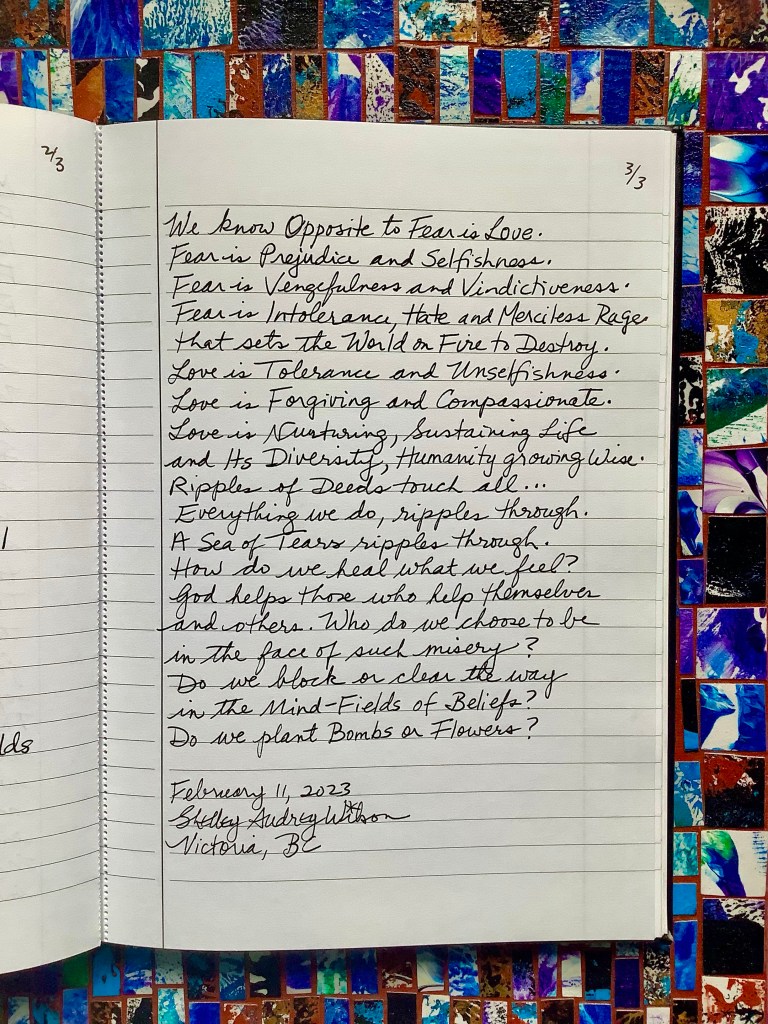 2/3
lds
3/3
We know Opposite to Fear is Love.
Fear is Prejudice and Selfishness.
Fear is Vengefulness and Vindictiveness.
Fear is Intolerance, Hate and Merciless Rage
that sets the World on Fire to Destroy.
Love is Tolerance and Unselfishness.
Love is Forgiving and Compassionate.
Love is Nurturing, Sustaining Life
and Its Diversity, Humanity growing Wise.
Ripples of Deeds touch all...
Everything we do, ripples through.
A Sea of Tears ripples through.
How do we heal what we feel?
God helps those who help themselves
and others. Who do we choose to be
in the face of such misery?
Do we block or clear the way
in the Mind-Fields of Beliefs?
Do we plant Bombs or Flowers?
February 11, 2023
Shelley Audrey Wilson
Victoria, BC